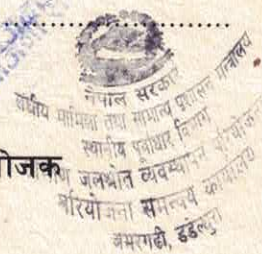 नेपाल सरकार
संघीय मामिला तथा सामान्य प्रशासन मन्त्रालय
स्थानीय पूर्वाधार विभाग
जलश्रोत व्यवस्थापन परियोजना
परियोजना समन्वय कार्यालय
अमरगढी, डडेल्धुरा
ोजक